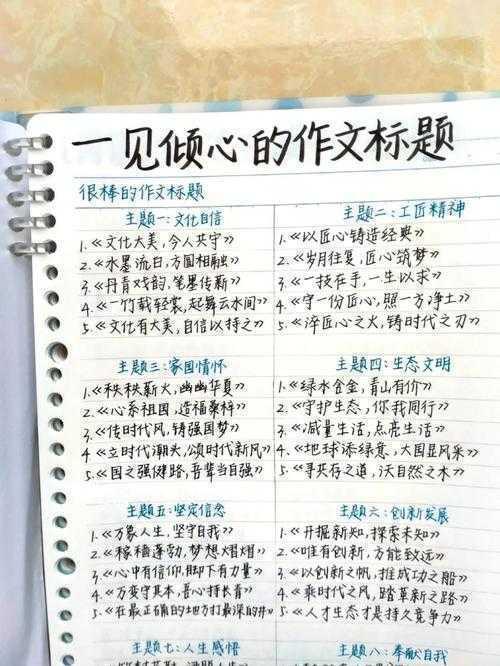 一见倾心的作文标题
很棒的作文标题
主题一:文化自信
1.《文化大美,今人共守》
2.《水墨流白,方圆相融》
3.《丹青戏韵,笔墨传新》
4.《一竹载轻裳,起舞云水间》
5.《文化有大美,自信以持之》
主题二:工匠精神
1.《以匠心铸造经典》
2.《岁月往复,匠心筑梦》
3.《一技在手,一生以求》
4.《守一份匠心,照一方净土》
5.《淬匠心之火,铸时代之刃》
主题三:家国情怀
1.《秩秩薪火,幽幽华夏》
2.《心系祖国,造福桑梓》
3.《传时代风,铸强国梦》
4.《立时代潮头,颂时代新风》
5.《国之强健路,吾辈当自强》
主题四:生态文明
1.《绿水含金,青山有价》
2.《守护生态,你我同行》
3.《减量生活,点亮生活》
4.《地球添绿意,大国显风采》
5.《寻共存之道,沃自然之木》
主题五:坚定信念
1.《万象人生,坚守自我》
2.《稼穑蓬勃,梦想熠熠》
3.《心中有信仰,脚下有力量》
4.《万变守其本,吾心持长青》
5.《在最正确的地方打最深的井》
主题六:创新发展
1.《开掘新知,探索未知》
2.《唯有创新,方能致远》
3.《以创新之帆,推成功之船》
4.《乘时代之风,踏革新之路》
5.《人才生态才是持久竞争力》
主题七:人生感悟
主题八:奉献自我